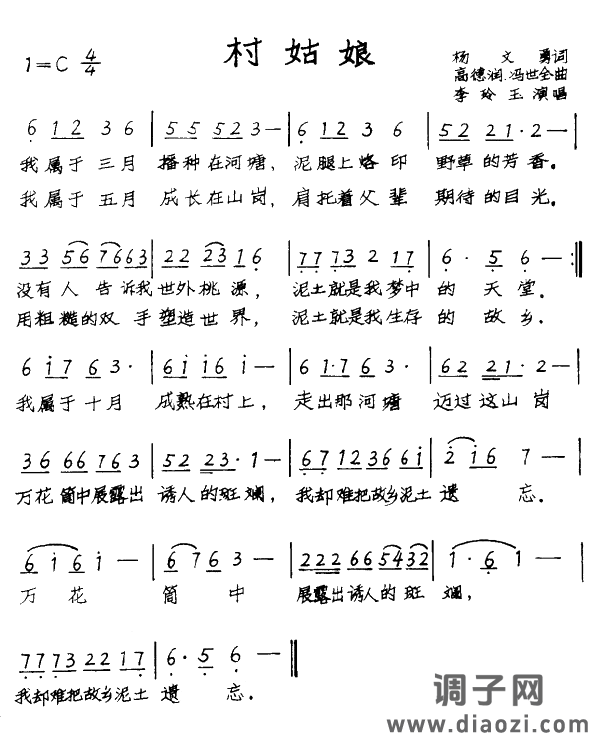 村姑娘
1=C 4/4
杨文勇词
高德润.冯世全曲
李玲玉演唱
6 12 3 6 | 55 5523— | 6 123 6 | 52 21·2— |
我属于三月 播种在河塘，泥腿上烙印 野草的芳香。
我属于五月 成长在山岗，肩托着父辈 期待的目光。
33 567663 | 22 2316 | 77732 17 | 6· 5 6— :||
没有人 告诉我世外桃源，泥土就是我梦中的天堂。
用粗糙的双手塑造世界，泥土就是我生存的故乡。
6 i7 63· | 6i i6 i— | 6 1·7 63· | 62 21·2— |
我属于十月 成熟在村上，走出那河塘 迈过这山岗
36 66763 | 52 23·1— | 67123666i | 2 i6 7— |
万花筒中展露出 诱人的斑斓，我却难把故乡泥土遗忘。
6 i 6 i— | 6 7 6 3— | 222665432 | 1·6 1— |
万花筒中 展露出诱人的斑斓，
77732217 | 6·5 6— ||
我却难把故乡泥土遗忘。
调子网
www.diaozi.com